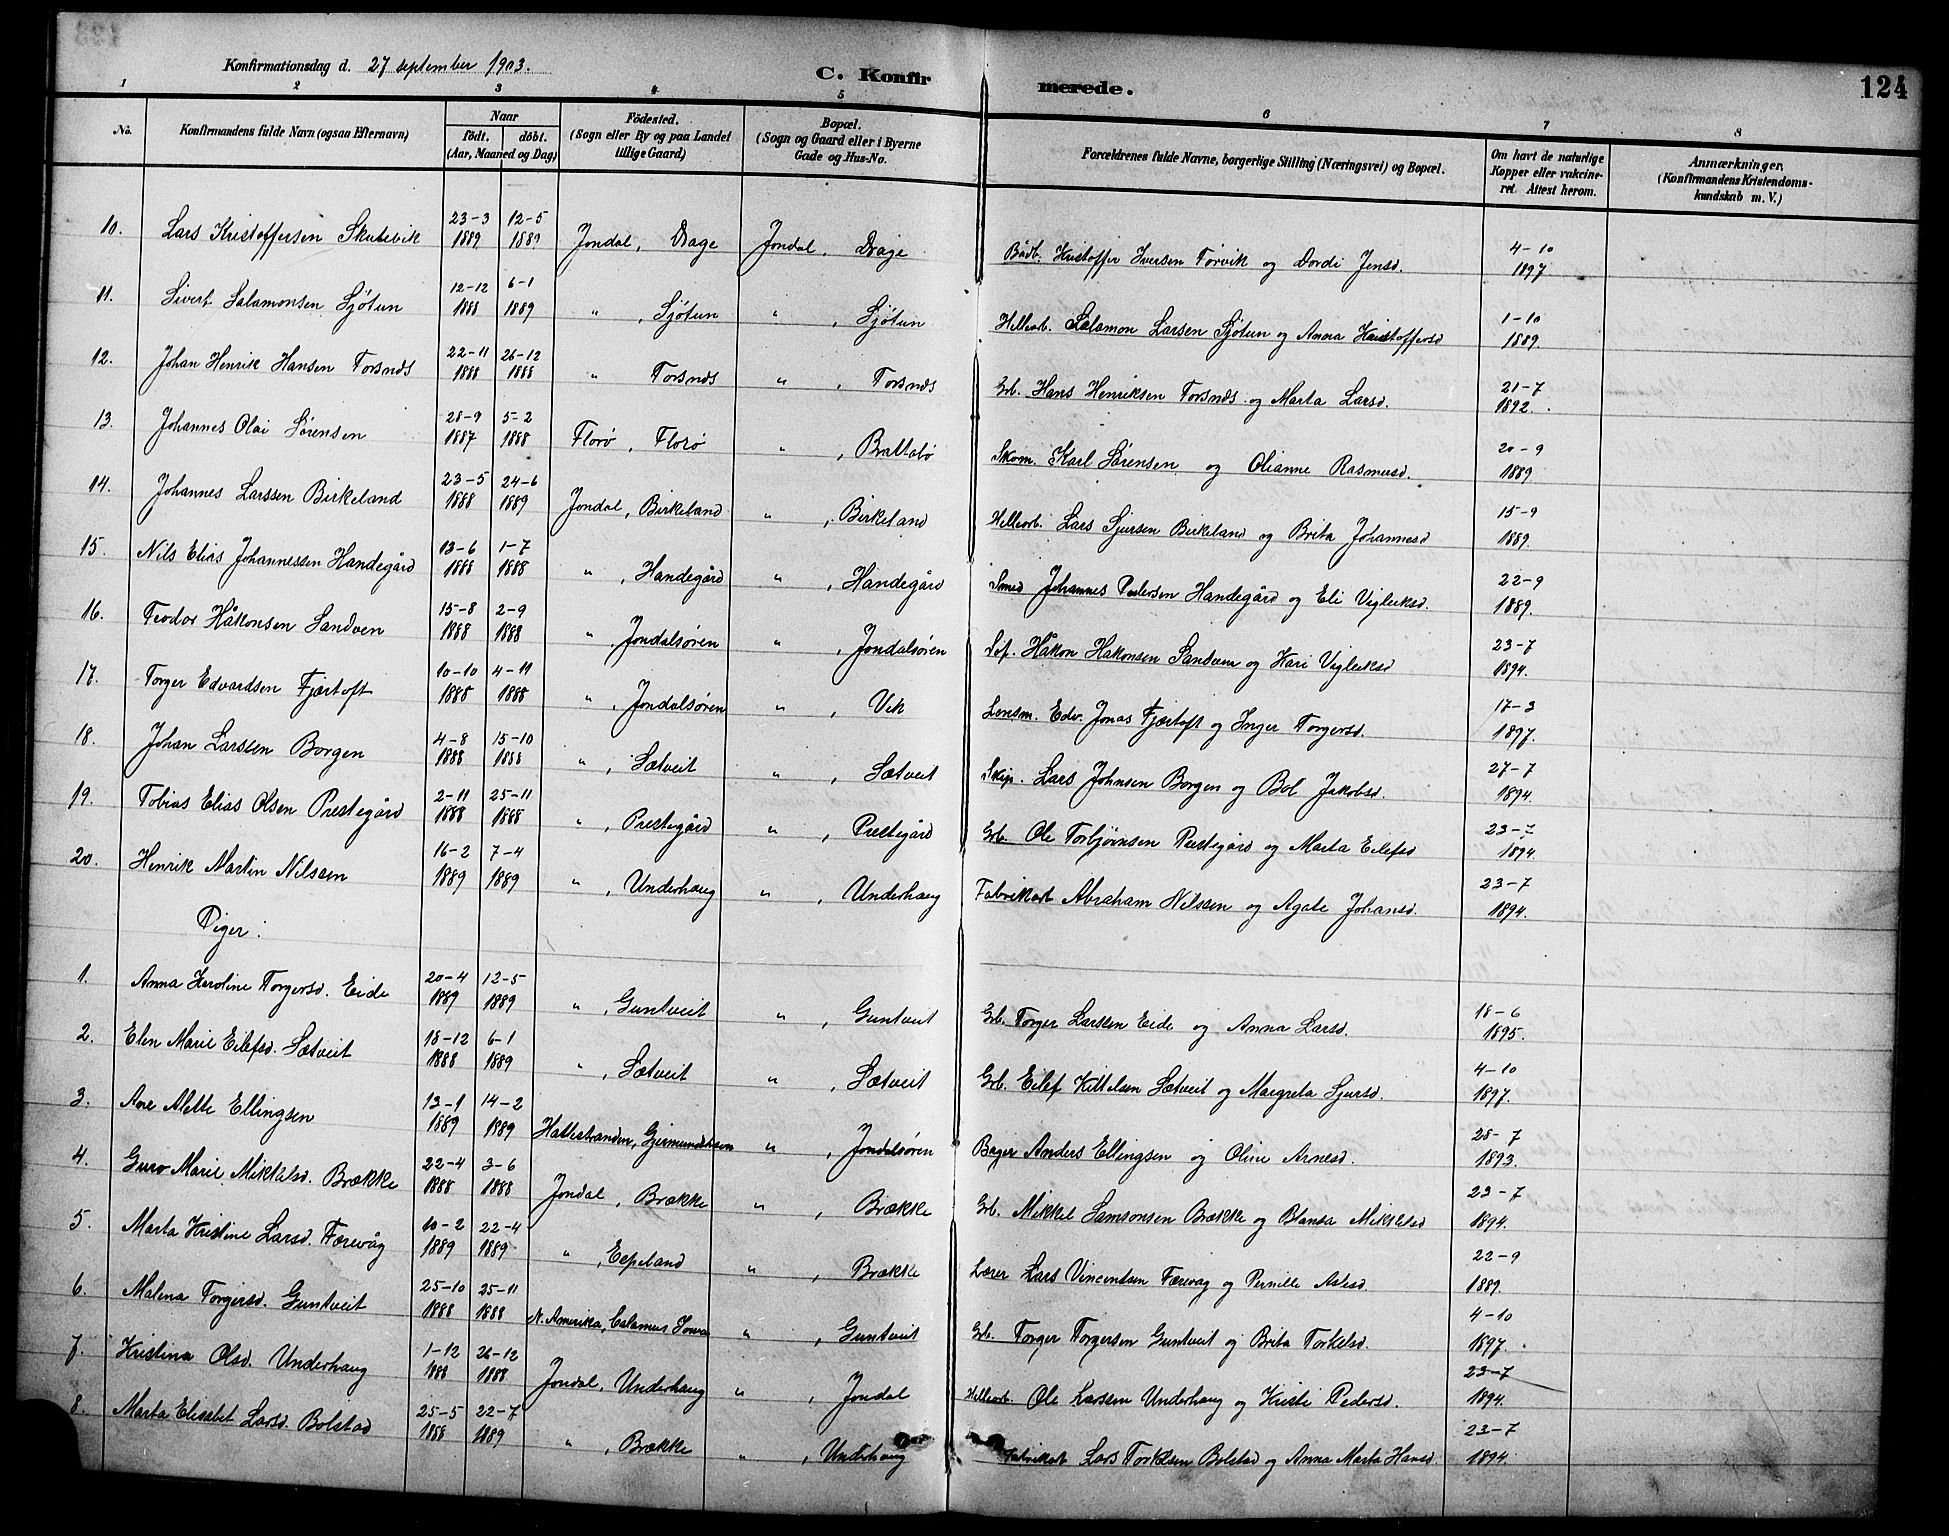 Konfirmationsdag d. 27 september 1903.
C. Konfirmerede.
124
1 2 3 4 5 6 7 8
No.
Konfirmandens fulde Navn (ogsaa Efternavn)
Naar
födt. döbt.
(Aar, Maaned og Dag)
Födested.
(Sogn eller By og paa Landet
tillige Gaard)
Bopæl.
(Sogn og Gaard eller i Byerne
Gade og Hus-No.
Forældrenes fulde Navne, borgerlige Stilling (Næringsvei) og Bopæl.
Om havt de naturlige
Kopper eller vakcine-
ret. Attest herom.
Anmærkninger,
(Konfirmandens Kristendoms-
kundskab m. V.)
10. Lars Kristoffersen Skutevik 23-3 1889 12-5 1889 Jondal, Drage Jondal, Drage Bådb. Kristoffer Iversen Torvik og Dordi Jensd. 4-10 1897
11. Sivert Salamonsen Sjötun 12-12 1888 6-1 1889 " , Sjötun " , Sjötun Hellearb. Salamon Larsen Sjötun og Anna Kristoffersd 1-10 1889
12. Johan Henrik Hansen Torsnæs 22-11 1888 26-12 1888 " Torsnæs " , Torsnæs Grb. Hans Henriksen Torsnæs og Marta Larsd. 21-7 1892.
13. Johannes Olai Sørensen 28-9 1887 5-2 1888 Florø, Florø " , Brattabø Skom. Karl Sørensen og Olianne Rasmusd. 20-9 1889
14. Johannes Larssen Birkeland 23-5 1888 24-6 1889 Jondal, Birkeland " , Birkeland Hellearb. Lars Sjursen Birkeland og Brita Johannesd 15-9 1889.
15. Nils Elias Johannessen Handegård 13-6 1888 1-7 1888 " , Handegård " , Handegård Smed Johannes Pedersen Handegård og Eli Vigleiksd. 22-9 1889.
16. Teodor Håkonsen Sandven 15-8 1888 2-9 1888 " , Jondalsøren " , Jondalsøren Håkon Håkonsen Sandven og Kari Vigleiksd 23-7 1894.
17. Torger Edvardsen Fjærtoft 10-10 1888 4-11 1888 " , Jondalsøren " , Vik Lensm. Edv. Jonas Fjærtoft og Inger Torgersd. 17-3 1897.
18. Johan Larssen Borgen 4-8 1888 15-10 1888 " , Sætveit " , Sætveit Skip. Lars Johnsen Borgen og Bol Jakobsd. 27-7 1894.
19. Tobias Elias Olsen Prestegård 2-11 1888 25-11 1888 " , Prestegård " , Prestegård Grb. Ole Torbjørnsen Prestegård og Marta Eilefsd 23-7 1894.
20. Henrik Martin Nilssen 16-2 1889 7-4 1889 " , Underhaug " , Underhaug Fabrikarb Abraham Nilssen og Agate Johansd. 23-7 1894.
Piger.
1. Anna Karoline Torgersd. Eide 20-4 1889 12-5 1889 " , Guntveit " , Guntveit Grb. Torger Larssen Eide og Anna Larsd. 18-6 1895.
2. Elen Marie Eilefsd. Sætveit 18-12 1888 6-1 1889 " , Sætveit " , Sætveit Grb. Eilef Kittelsen Sætveit og Margreta Sjursd. 4-10 1897.
3. Ane Alette Ellingsen 13-1 1889 14-2 1889 Hattestranden, Gjermundshavn " , Jondalsøren Bager Anders Ellingsen og Oline Arnesd. 28-7 1893.
4. Guro Marie Mikkelsd. Brække 22-4 1888 3-6 1888 Jondal, Brække " , Brække Grb. Mikkel Samsonsen Brække og Blansa Mikkelsd 23-7 1894.
5. Marta Kristine Larsd. Færevåg 10-2 1889 22-4 1889 " , Espeland " , Brække Lærer Lars Vincendsen Færevag og Pernille Aslesd. 22-9 1889.
6. Malena Torgersd. Guntveit 25-10 1888 25-11 1888 N. Amerika, Calamus Iowa " , Guntveit Grb. Torger Torgersen Guntveit og Brita Torkelsd. 4-10 1897.
7. Kristina Olsd. Underhaug 1-12 1888 26-12 1888 Jondal, Underhaug " , Jondal Hellearb. Ole Larssen Underhaug og Kristi Pedersd. 23-7 1894.
8. Marta Elisabet Larsd. Bolstad 25-5 1888 22-7 1889 " , Brække " , Underhaug Fabrikarb Lars Torkelsen Bolstad og Anna Marta Hansd. 23-7 1894.